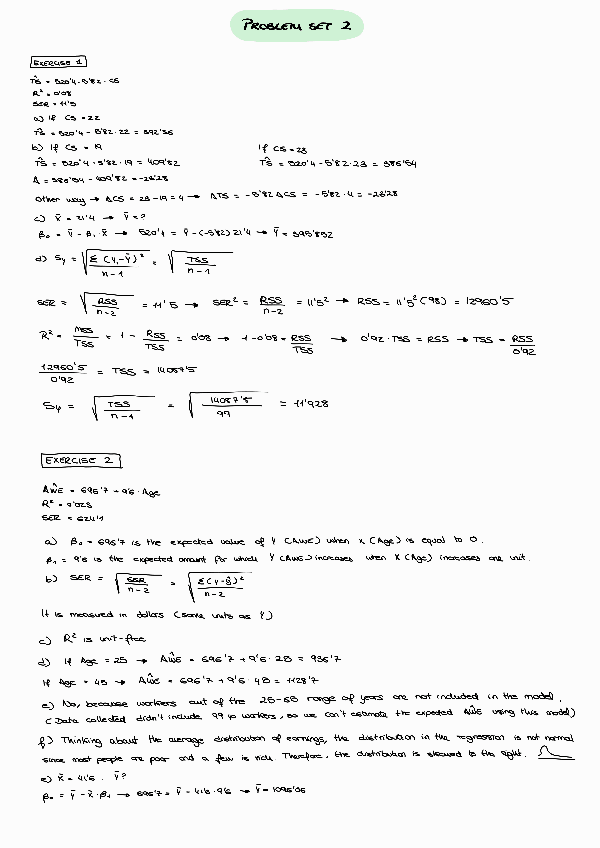 PROBLEM SET 2
EXERCISE 1
T̂S = 520'4 - 5'82 · CS
R² = 0'08
SER = 11'5
a) If CS = 22
T̂S = 520'4 - 5'82 · 22 = 392'36
b) If CS = 19 If CS = 23
T̂S = 520'4 - 5'82 · 19 = 409'82 T̂S = 520'4 - 5'82 · 23 = 386'54
Δ = 386'54 - 409'82 = -23'28
Other way → ΔCS = 23 - 19 = 4 → ΔTS = -5'82 ΔCS = -5'82 · 4 = -23'28
c) x̄ = 21'4 → ȳ = ?
β₀ = ȳ - β₁ · x̄ → 520'4 = ȳ - (-5'82) 21'4 → ȳ = 395'852
d) Sy = √(Σ(yᵢ-ȳ)² / n-1) = √(TSS / n-1)
SER = √(RSS / n-2) = 11'5 → SER² = RSS / n-2 = 11'5² → RSS = 11'5² (98) = 12960'5
R² = MSS / TSS = 1 - RSS / TSS = 0'08 → 1 - 0'08 = RSS / TSS → 0'92 · TSS = RSS → TSS = RSS / 0'92
12960'5 / 0'92 = TSS = 14087'5
Sy = √(TSS / n-1) = √(14087'5 / 99) = 11'928
EXERCISE 2
AŴE = 696'7 + 9'6 · Age
R² = 0'023
SER = 624'1
a) β₀ = 696'7 is the expected value of Y (AWE) when X (Age) is equal to 0.
β₁ = 9'6 is the expected amount for which Y (AWE) increases when X (Age) increases one unit.
b) SER = √(SSR / n-2) = √(Σ(y-ŷ)² / n-2)
It is measured in dollars (same units as Y)
c) R² is unit-free
d) If Age = 25 → AŴE = 696'7 + 9'6 · 25 = 936'7
If Age = 45 → AŴE = 696'7 + 9'6 · 45 = 1128'7
e) No, because workers out of the 25-65 range of years are not included in the model.
(Data collected didn't include 99 yo workers, so we can't estimate the expected AŴE using this model)
f) Thinking about the average distribution of earnings, the distribution in the regression is not normal
since most people are poor and a few is rich. Therefore, the distribution is skewed to the right.
g) x̄ = 41'6. ȳ?
β₀ = ȳ - x̄ · β₁ → 696'7 = ȳ - 41'6 · 9'6 → ȳ = 1096'06